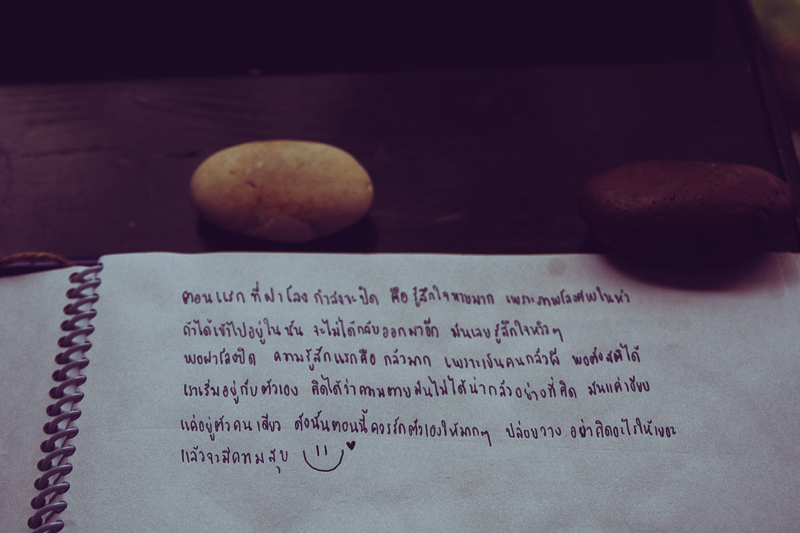 ตอนแรก ที่ฝาโลง กำลังจะปิด คือ รู้สึกใจหายมาก เพราะภาพโลงศพในหัว
ถ้าได้เข้าไปอยู่ในนั้น จะไม่ได้กลับออกมาอีก มันเลยรู้สึกใจหวิวๆ
พอฝาโลงปิด ความรู้สึกแรกคือ กลัวมาก เพราะเป็นคนกลัวผี พอตั้งสติได้
เราเริ่มอยู่กับตัวเอง คิดได้ว่าความตายมันไม่ได้น่ากลัวอย่างที่คิด มันแค่เงียบ
แค่อยู่ตัวคนเดียว ดังนั้นตอนนี้ควรรักตัวเองให้มากๆ ปล่อยวาง อย่าคิดอะไรให้เยอะ
แล้วจะมีความสุข